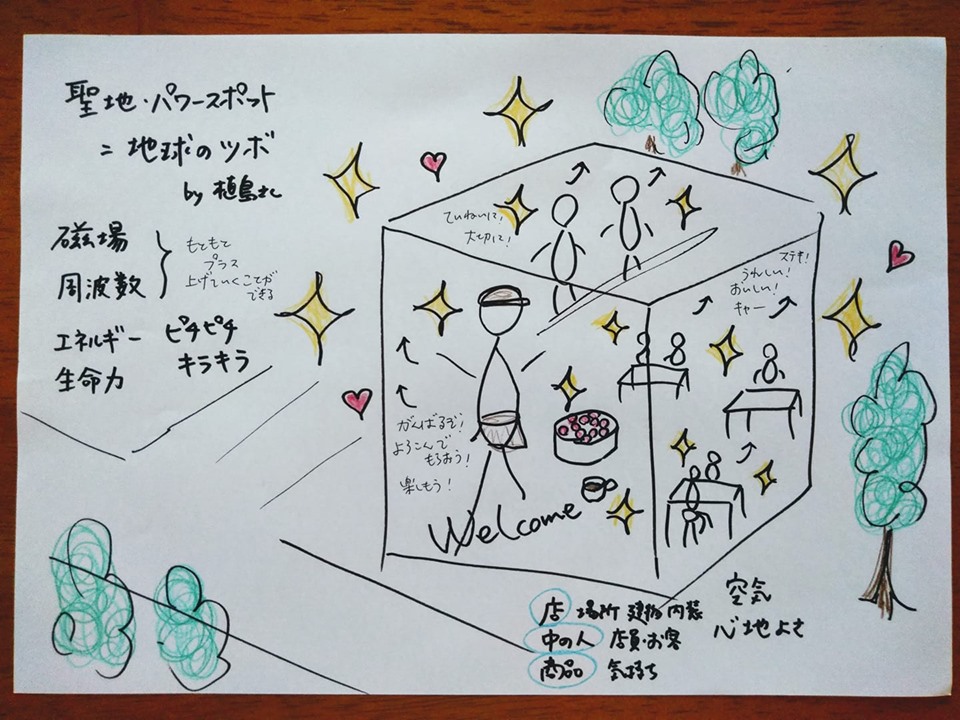 聖地・パワースポット
＝地球のツボ
by 植島さん
磁場
周波数
もてもて
プラス
上げていくことが
できる
エネルギー ピチピチ
生命力 キラキラ
ていねいに！
大切に！
ステキ！
うれしい！
おいしい！
キャー
がんばるぞ！
よろこんで
もらおう！
楽しもう！
Welcome
店 場所 建物 内装
中の人 店員・お客
商品 気持ち
空気
心地よさ